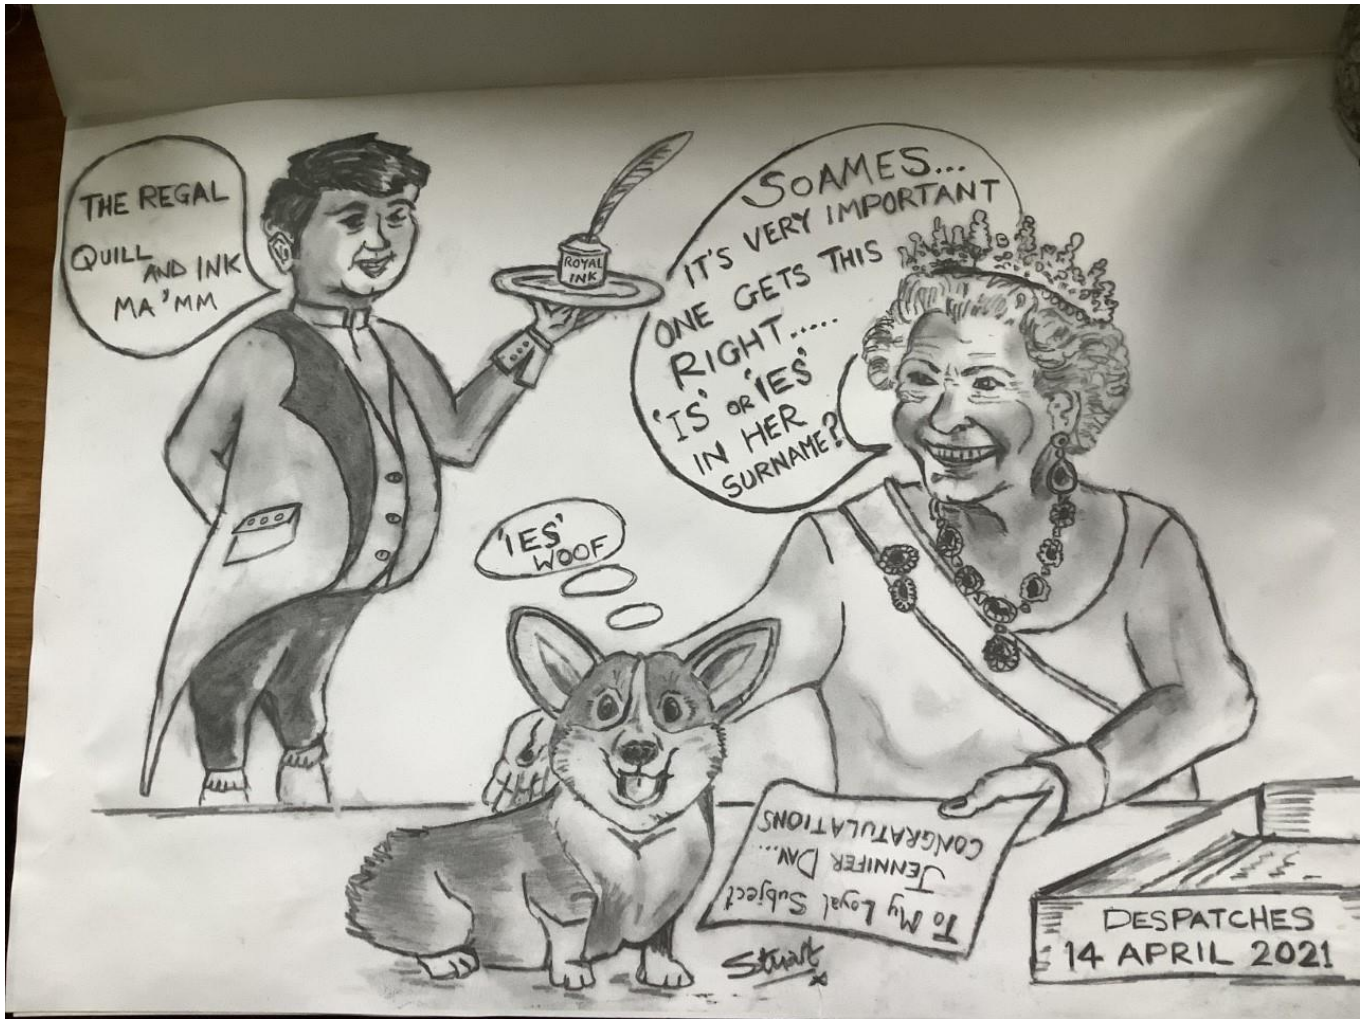 THE REGAL
QUILL
AND INK
MA'MM
ROYAL
INK
SOAMES...
IT'S VERY IMPORTANT
ONE GETS THIS
RIGHT.....
'IS' OR 'IES'
IN HER
SURNAME?
'IES'
WOOF
To My Loyal Subject
JENNIFER DAV...
CONGRATULATIONS
Stuart
x
DESPATCHES
14 APRIL 2021